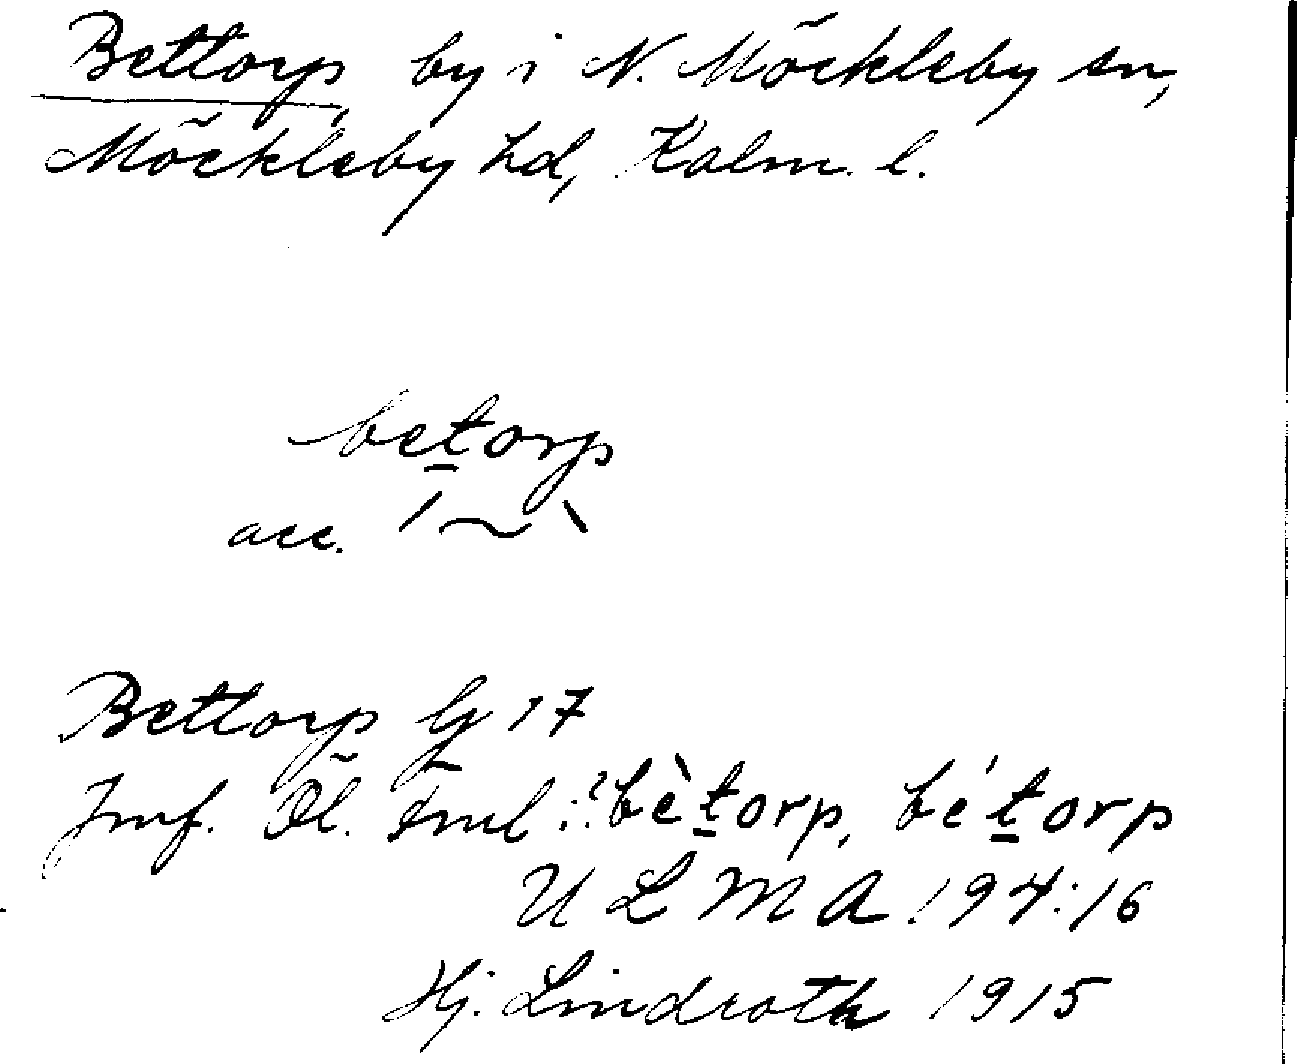 Bettorp, by i N. Möckleby sn,
Möckleby hd, Kalm. l.
beṯorp
acc. ´ ~ `
Bettorp G 17
Jmf. Öl. Fml i: bèṯorp, béṯorp
U L M A 194:16
Hj. Lindroth 1915